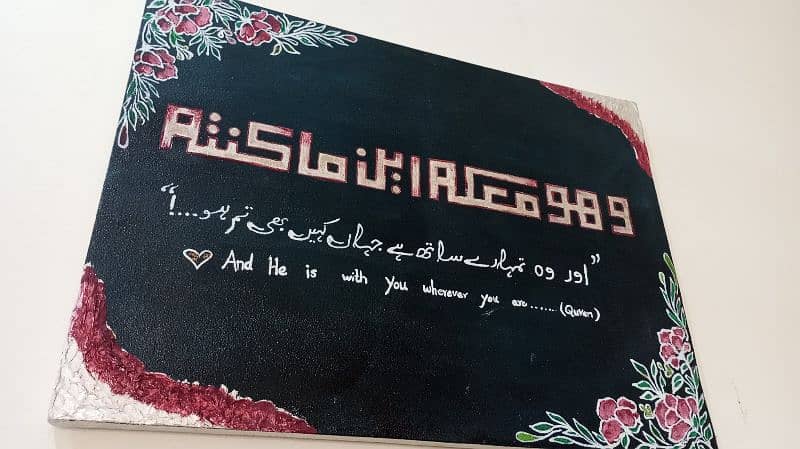 وهو معكم این ما كنتم
”اور وہ تمہارے ساتھ ہے جہاں کہیں بھی تم ہو...!“
And He is with you wherever you are...... (Quran)